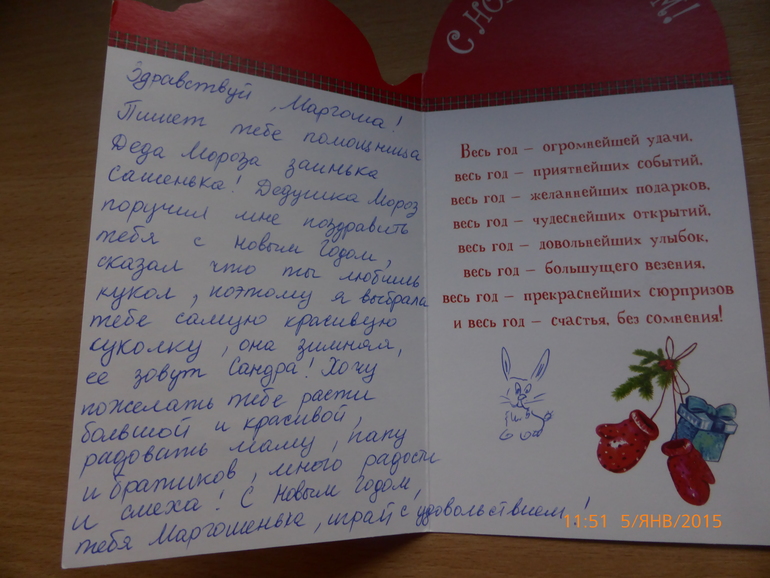 Здравствуй, Маргоша!
Пишет тебе помощница
Деда Мороза заинька
Сашенька! Дедушка Мороз
поручил мне поздравить
тебя с Новым Годом,
сказал что ты любишь
кукол, поэтому я выбрала
тебе самую красивую
куколку, она зимняя,
ее зовут Сандра! Хочу
пожелать тебе расти
большой и красивой,
радовать маму, папу
и братиков, много радости
и смеха! С Новым Годом,
тебя Маргошенька, играй с удовольствием!
С НО М!
Весь год – огромнейшей удачи,
весь год – приятнейших событий,
весь год – желаннейших подарков,
весь год – чудеснейших открытий,
весь год – довольнейших улыбок,
весь год – большущего везения,
весь год – прекраснейших сюрпризов
и весь год – счастья, без сомнения!
11:51 5/ЯНВ/2015